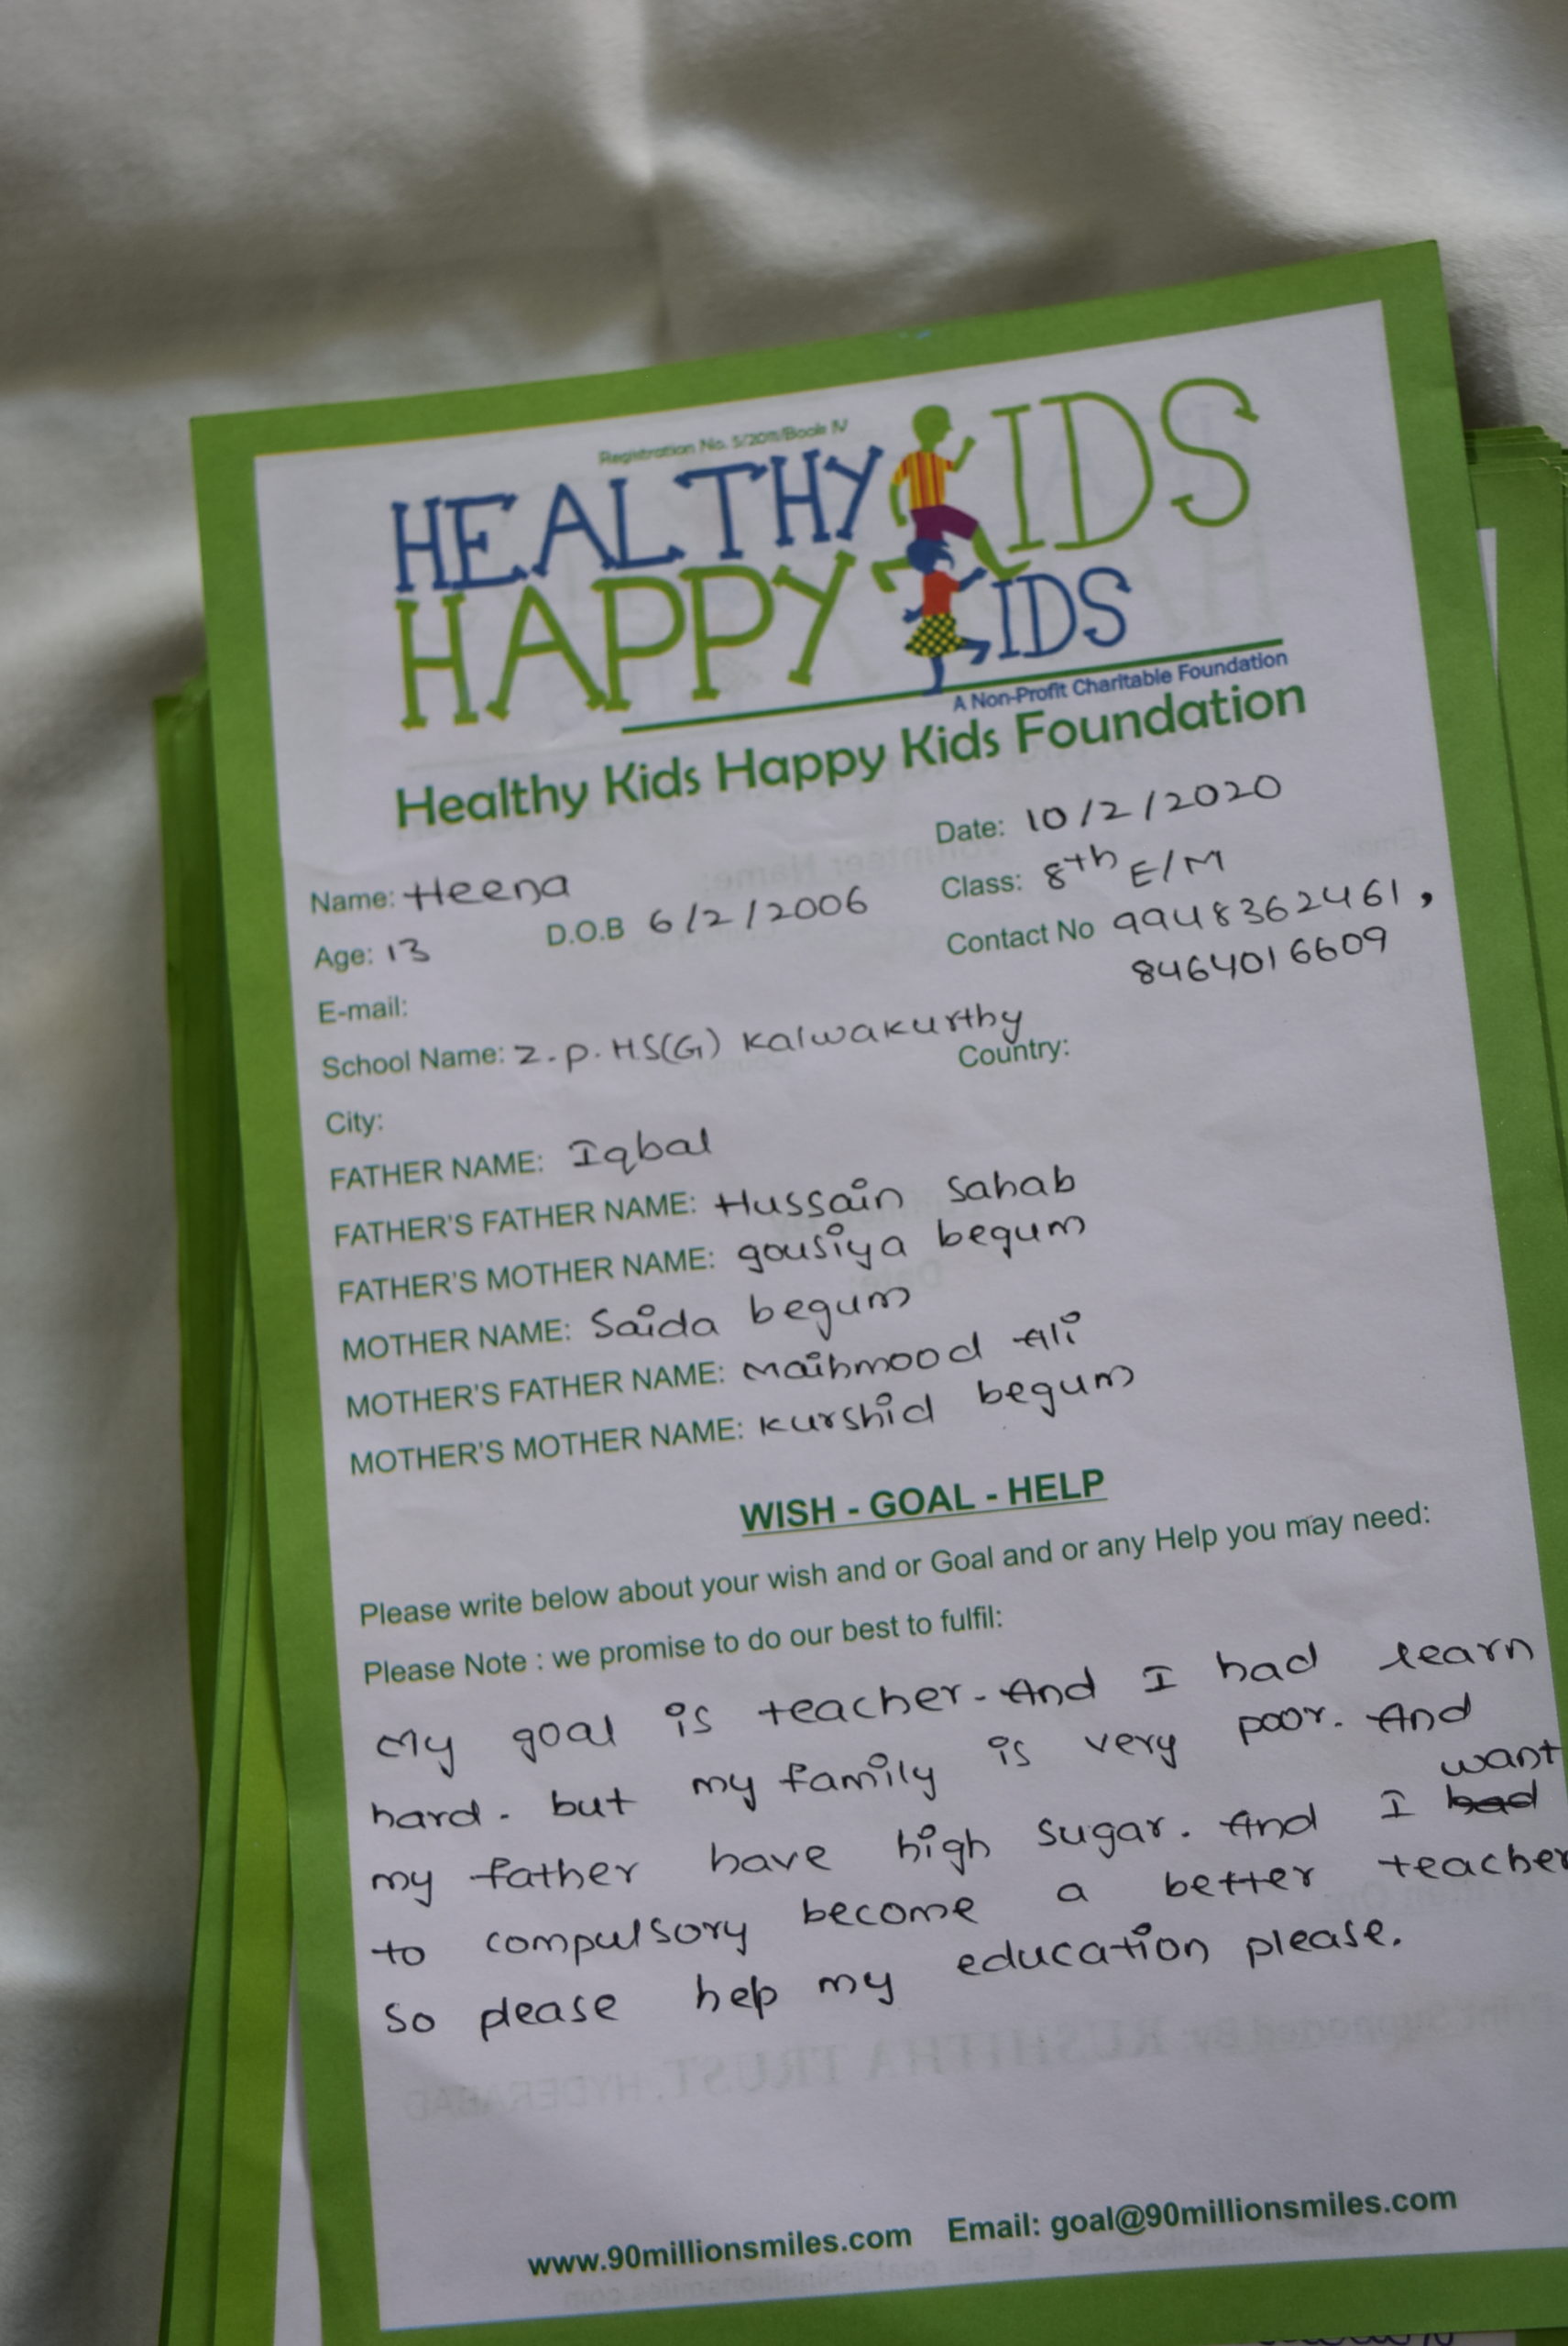 Registration No. 5/2011/Book IV
HEALTHY KIDS
HAPPY KIDS
A Non-Profit Charitable Foundation
Healthy Kids Happy Kids Foundation
Date: 10/2/2020
Name: Heena
Class: 8th E/M
Age: 13 D.O.B 6/2/2006
Contact No 9948362461,
8464016609
E-mail:
School Name: Z.p.H.S(G) Kalwakurthy
Country:
City:
FATHER NAME: Iqbal
FATHER'S FATHER NAME: Hussain Sahab
FATHER'S MOTHER NAME: gousiya begum
MOTHER NAME: Saida begum
MOTHER'S FATHER NAME: Maihmood Ali
MOTHER'S MOTHER NAME: Kurshid begum
WISH - GOAL - HELP
Please write below about your wish and or Goal and or any Help you may need:
Please Note : we promise to do our best to fulfil:
My goal is teacher. And I had learn
hard. but my family is very poor. And
my father have high sugar. And I had want
to compulsory become a better teacher
so please help my education please.
www.90millionsmiles.com Email: goal@90millionsmiles.com